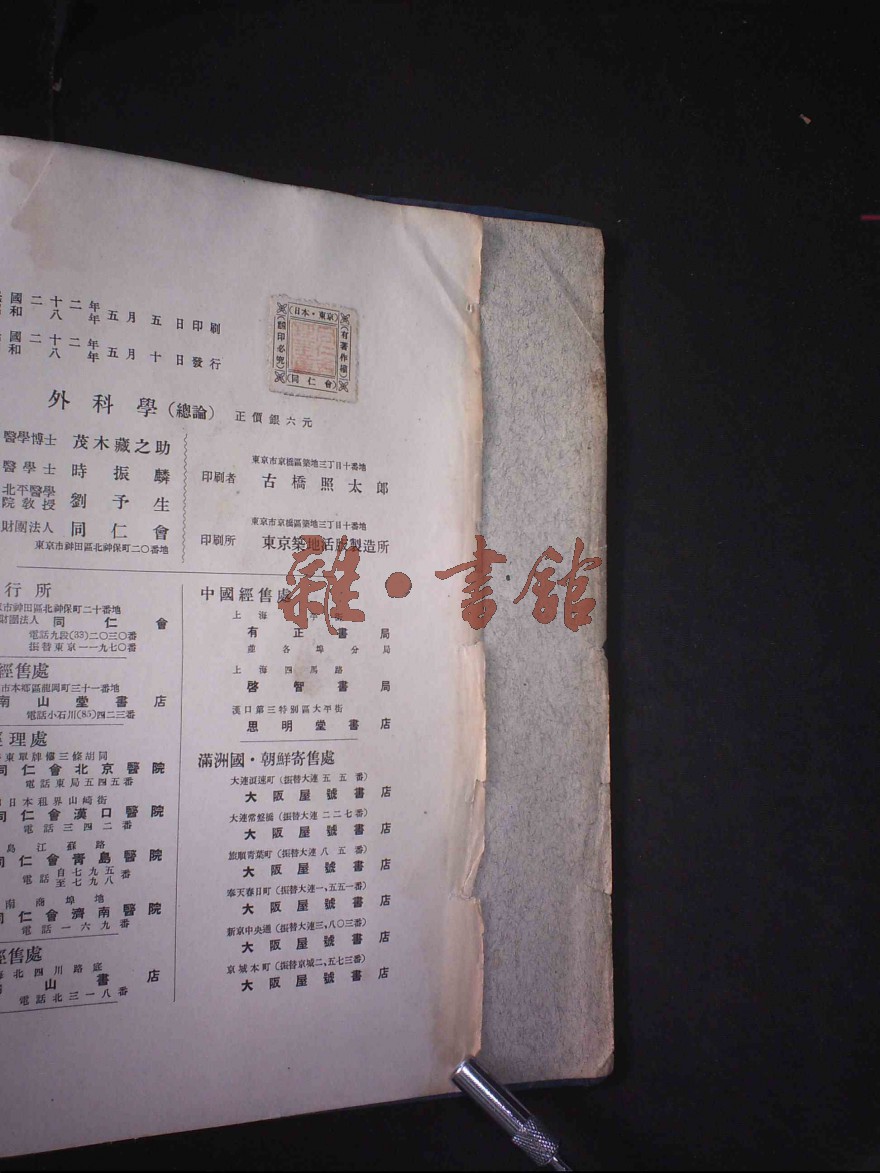 國二十二年
和八年五月五日印刷
國二十二年
和八年五月十日發行
日本・東京
有著作權
翻印必究
同仁會
外科學(總論) 正價銀六元
醫學博士 茂木藏之助
醫學士 時振麟
北平醫學
院教授 劉予生
財團法人 同仁會
東京市神田區北神保町二〇番地
東京市京橋區築地三丁目十番地
印刷者 古橋照太郎
東京市京橋區築地三丁目十番地
印刷所 東京築地活版製造所
行所
京市神田區北神保町二十番地
財團法人 同仁會
電話九段(33)二〇三〇番
振替東京一一九七〇番
經售處
市本鄉區龍岡町三十一番地
南山堂書店
電話小石川(85)四二三番
經理處
東單牌樓三條胡同
同仁會北京醫院
電話東局五四五番
日本租界山崎街
同仁會漢口醫院
電話三四二番
島江蘇路
同仁會青島醫院
電話自七九五至七九八番
南商埠地
同仁會濟南醫院
電話一六九番
經售處
海北四川路底
山書店
電話北三一八番
中國經售處
上海
有正書局
並各埠分局
上海四馬路
啓智書局
漢口第三特別區大平街
思明堂書店
滿洲國・朝鮮寄售處
大連浪速町(振替大連五五番)
大阪屋號書店
大連常盤橋(振替大連二二七番)
大阪屋號書店
旅順青葉町(振替大連八五番)
大阪屋號書店
奉天春日町(振替大連一、五五一番)
大阪屋號書店
新京中央通(振替大連三、八〇三番)
大阪屋號書店
京城本町(振替京城二、五七三番)
大阪屋號書店
雜・書館